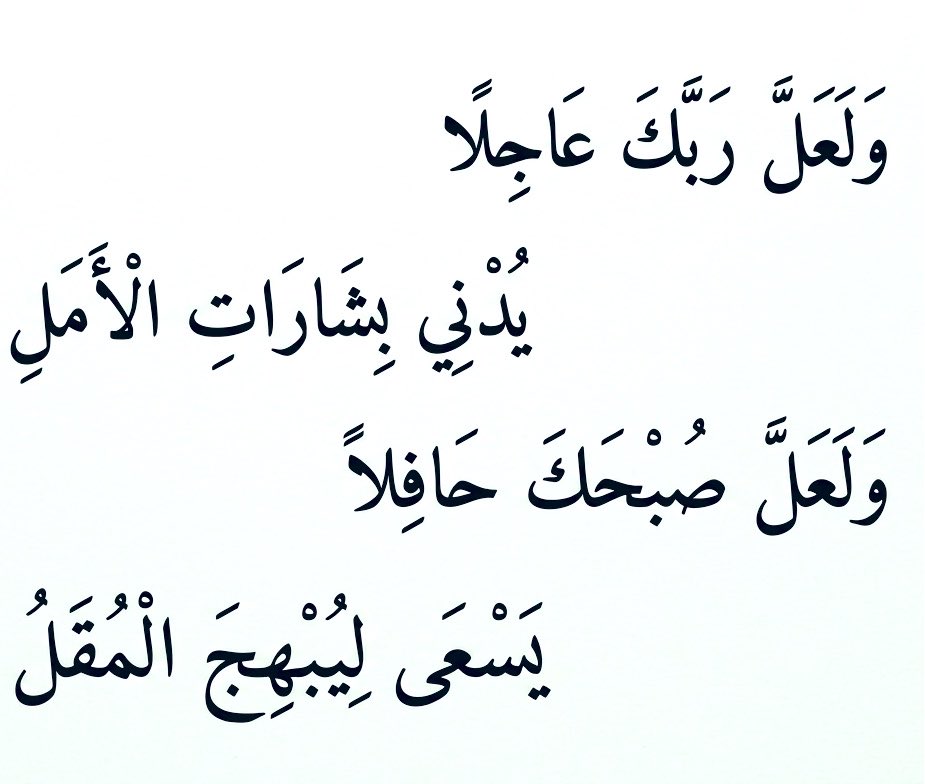 وَلَعَلَّ رَبَّكَ عَاجِلًا
يُدْنِي بِشَارَاتِ الْأَمَلِ
وَلَعَلَّ صُبْحَكَ حَافِلاً
يَسْعَى لِيُبْهِجَ الْمُقَلُ